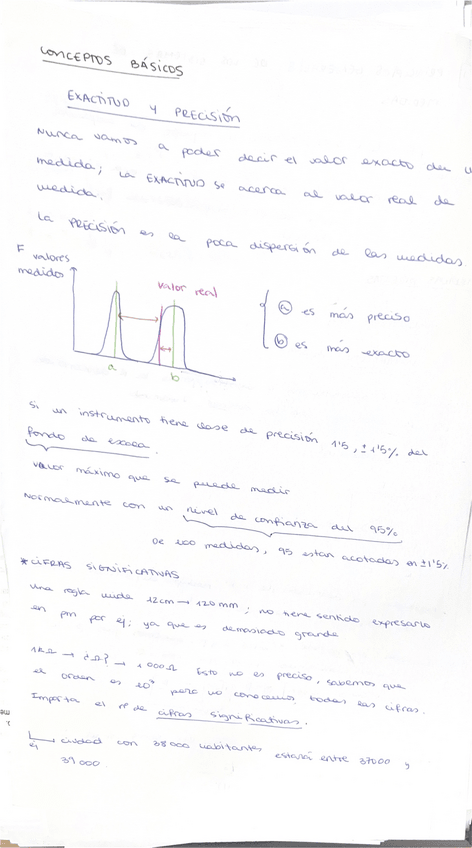 CONCEPTOS BÁSICOS
EXACTITUD Y PRECISIÓN
Nunca vamos a poder decir el valor exacto de u
medida; la EXACTITUD se acerca al valor real de
medida.
La PRECISIÓN es la poca dispersión de las medidas
F valores
medidos
valor real
a
b
a es más preciso
b es más exacto
Si un instrumento tiene clase de precisión 1'5, ±1'5% del
fondo de escala.
valor máximo que se puede medir
Normalmente con un nivel de confianza del 95%
De 100 medidas, 95 estan acotadas en ±1'5%
* CIFRAS SIGNIFICATIVAS
Una regla mide 12cm → 120mm; no tiene sentido expresarlo
en pm por ej; ya que es demasiado grande
1KΩ → ¿Ω? → 1000Ω Esto no es preciso, sabemos que
el orden es 10³ pero no conocemos todas las cifras.
Importa el nº de cifras significativas.
ej ciudad con 38000 habitantes estará entre 37000 y
39000